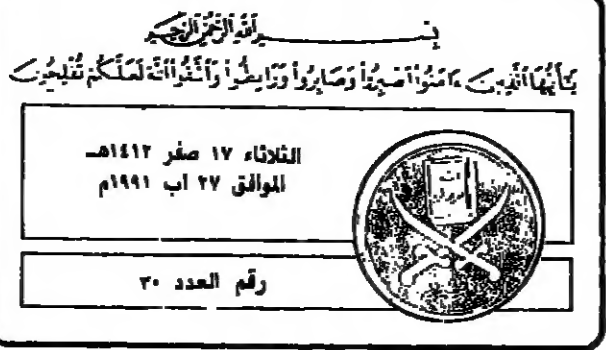 بِسْمِ اللَّهِ الرَّحْمَٰنِ الرَّحِيمِ
يَٰٓأَيُّهَا ٱلَّذِينَ ءَامَنُوا۟ ٱصْبِرُوا۟ وَصَابِرُوا۟ وَرَابِطُوا۟ وَٱتَّقُوا۟ ٱللَّهَ لَعَلَّكُمْ تُفْلِحُونَ
الثلاثاء ١٧ صفر ١٤١٢هـ
الموافق ٢٧ اب ١٩٩١م
رقم العدد ٣٠